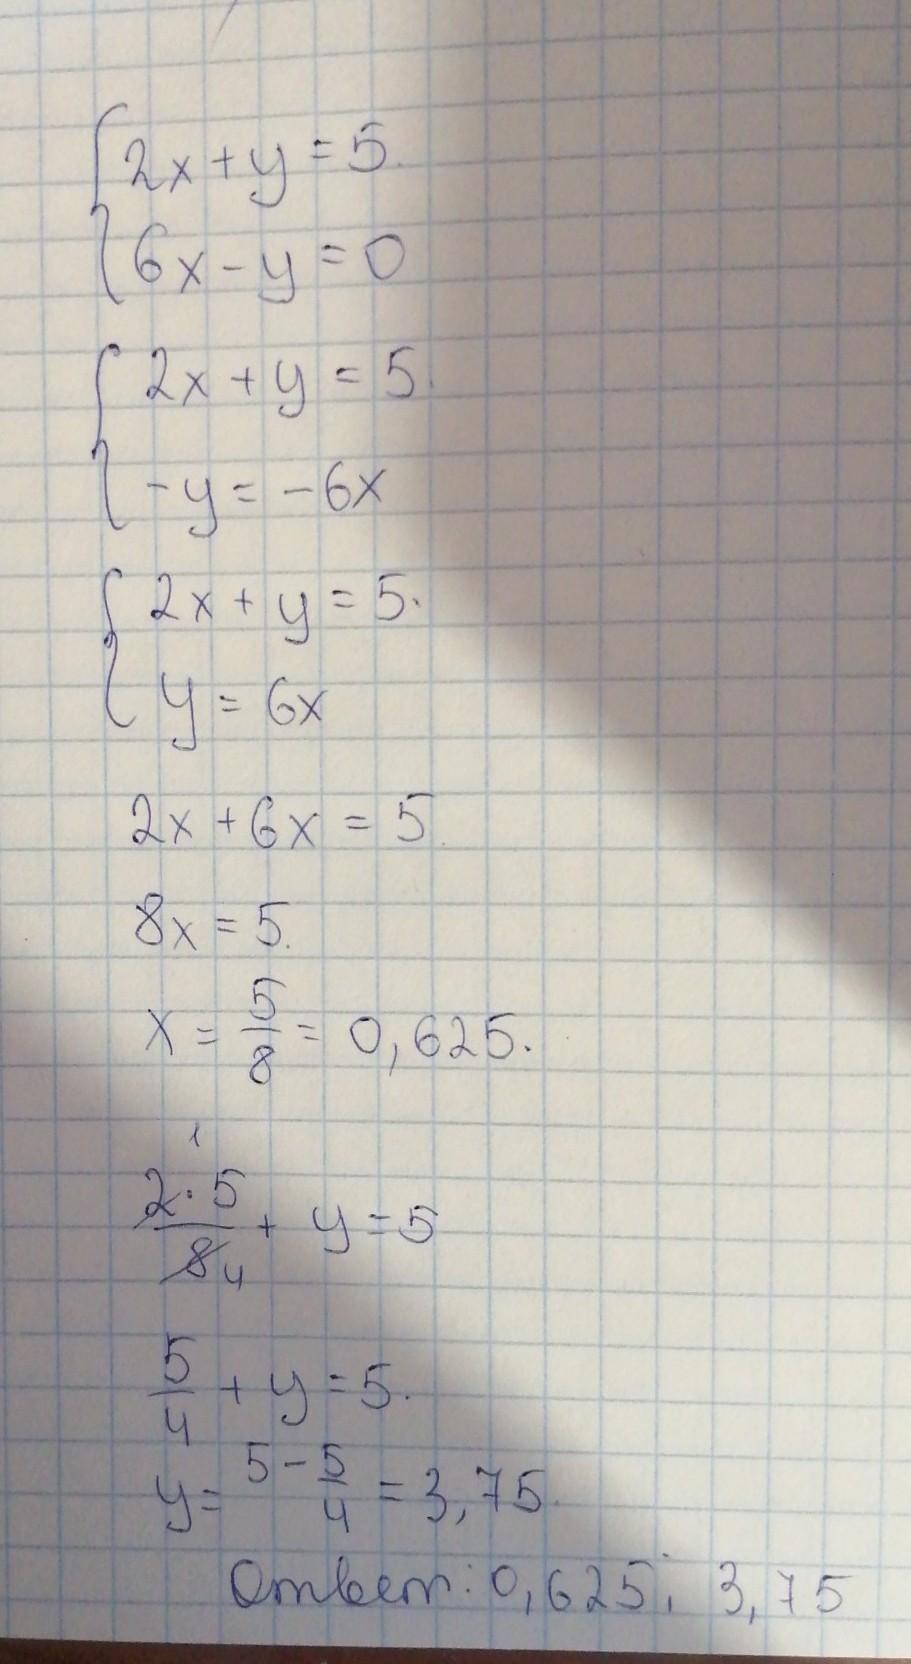 2x + y = 5.
6x - y = 0
2x + y = 5.
-y = -6x
2x + y = 5.
y = 6x
2x + 6x = 5.
8x = 5.
x = 5/8 = 0,625.
1
2·5/8 4 + y = 5
5/4 + y = 5.
y = 5 - 5/4 = 3,75.
Ответ: 0,625; 3,75